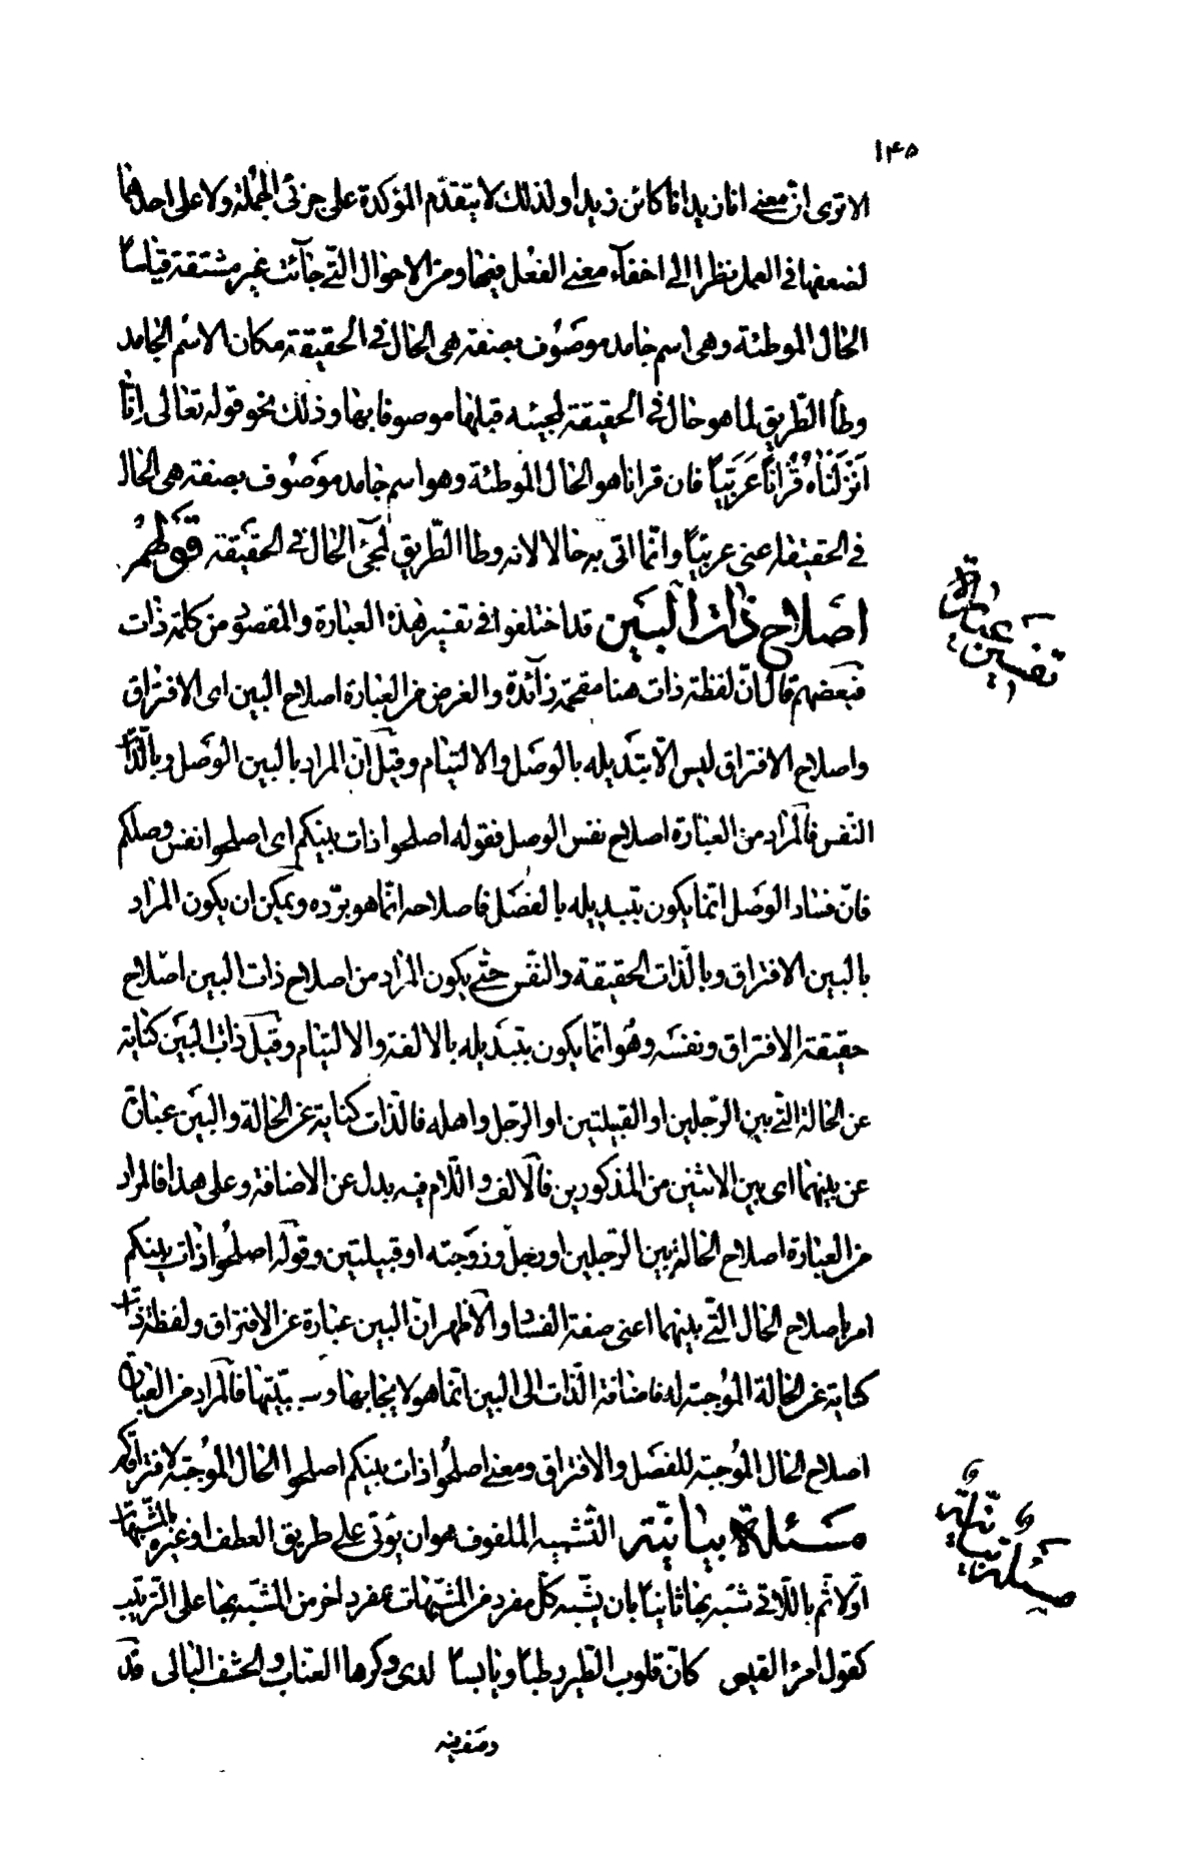 ١۴۵
الا ترى ان معنى انا زيد انا كائن زيدا ولذلك لا يتقدم المؤكدة على جزئى الجملة ولا على احدهما
لضعفها فى العمل نظرا الى اخفآء معنى الفعل فيها ومن الاحوال التى جائت غير مشتقة قياسا
الحال الموطئة وهى اسم جامد موصوف بصفة هى الحال فى الحقيقة مكان الاسم الجامد
وطأ الطريق لما هو حال فى الحقيقة لمجيئه قبلها موصوفا بها وذلك نحو قوله تعالى اِنّا
اَنْزَلْناهُ قُرْاناً عَرَبِيّاً فان قرانا هو الحال الموطئة وهو اسم جامد موصوف بصفة هى الحال
فى الحقيقة اعنى عربيّا وانّما اتى به حالا لانه وطأ الطّريق لمجئ الحال فى الحقيقة قولهم
اصلاح ذات البين قد اختلفوا فى تفسير هذه العبارة والمقصود من كلمة ذات
فبعضهم قال انّ لفظة ذات هنا مقحمة زآئدة والغرض من العبارة اصلاح البين اى الافتراق
واصلاح الافتراق ليس الّا بتبديله بالوصل والالتيام وقيل انّ المراد بالبين الوصل وبالذّات
النّفس فالمراد من العبارة اصلاح نفس الوصل فقوله اصلحوا ذات بينكم اى اصلحوا نفس وصلكم
فانّ فساد الوصل انما يكون بتبديله بالفصل فاصلاحه انّما هو بردّه ويمكن ان يكون المراد
بالبين الافتراق وبالذّات الحقيقة والنفس حتّى يكون المراد من اصلاح ذات البين اصلاح
حقيقة الافتراق ونفسه وهو انّما يكون بتبديله بالالفة والالتيام وقيل ذات البين كناية
عن الحالة الّتى بين الرّجلين او القبيلتين او الرّجل واهله فالذّات كناية عن الحالة والبين عبارة
عن بينهما اى بين الاثنين من المذكورين فالالف واللّام فيه بدل عن الاضافة وعلى هذا فالمراد
من العبارة اصلاح الحالة بين الرّجلين او رجل وزوجته او قبيلتين وقوله اصلحوا ذات بينكم
امر باصلاح الحال الّتى بينهما اعنى صفة الفساد والاظهر انّ البين عبارة عن الافتراق ولفظة ذات
كناية عن الحالة الموجبة له فاضافة الذّات الى البين انّما هو لايجابها وسببيّتها فالمراد من العبارة
اصلاح الحال الموجبة للفصل والافتراق ومعنى اصلحوا ذات بينكم اصلحوا الحال الموجبة لافتراقكم
مسئلة بيانيّة التّشبيه الملفوف هو ان يؤتى على طريق العطف او غيره بالمشبّهات
اوّلا ثم باللّاتى شبّه بها ثانيا بان يشبّه كلّ مفرد من المشبّهات بمفرد اخر من المشبّه بها على التّرتيب
كقول امرء القيس كانّ قلوب الطّير رطبا ويابسا لدى وكرها العناب والحشف البالى قد
وصف فيه
تفسير عبارة
مسئلة بيانيّة